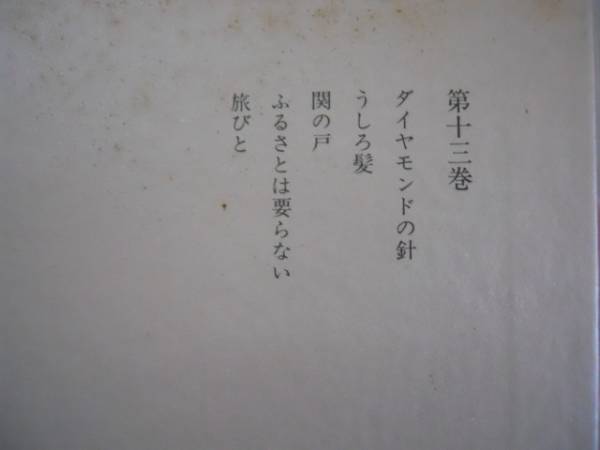 第十三巻
ダイヤモンドの針
うしろ髪
関の戸
ふるさとは要らない
旅びと